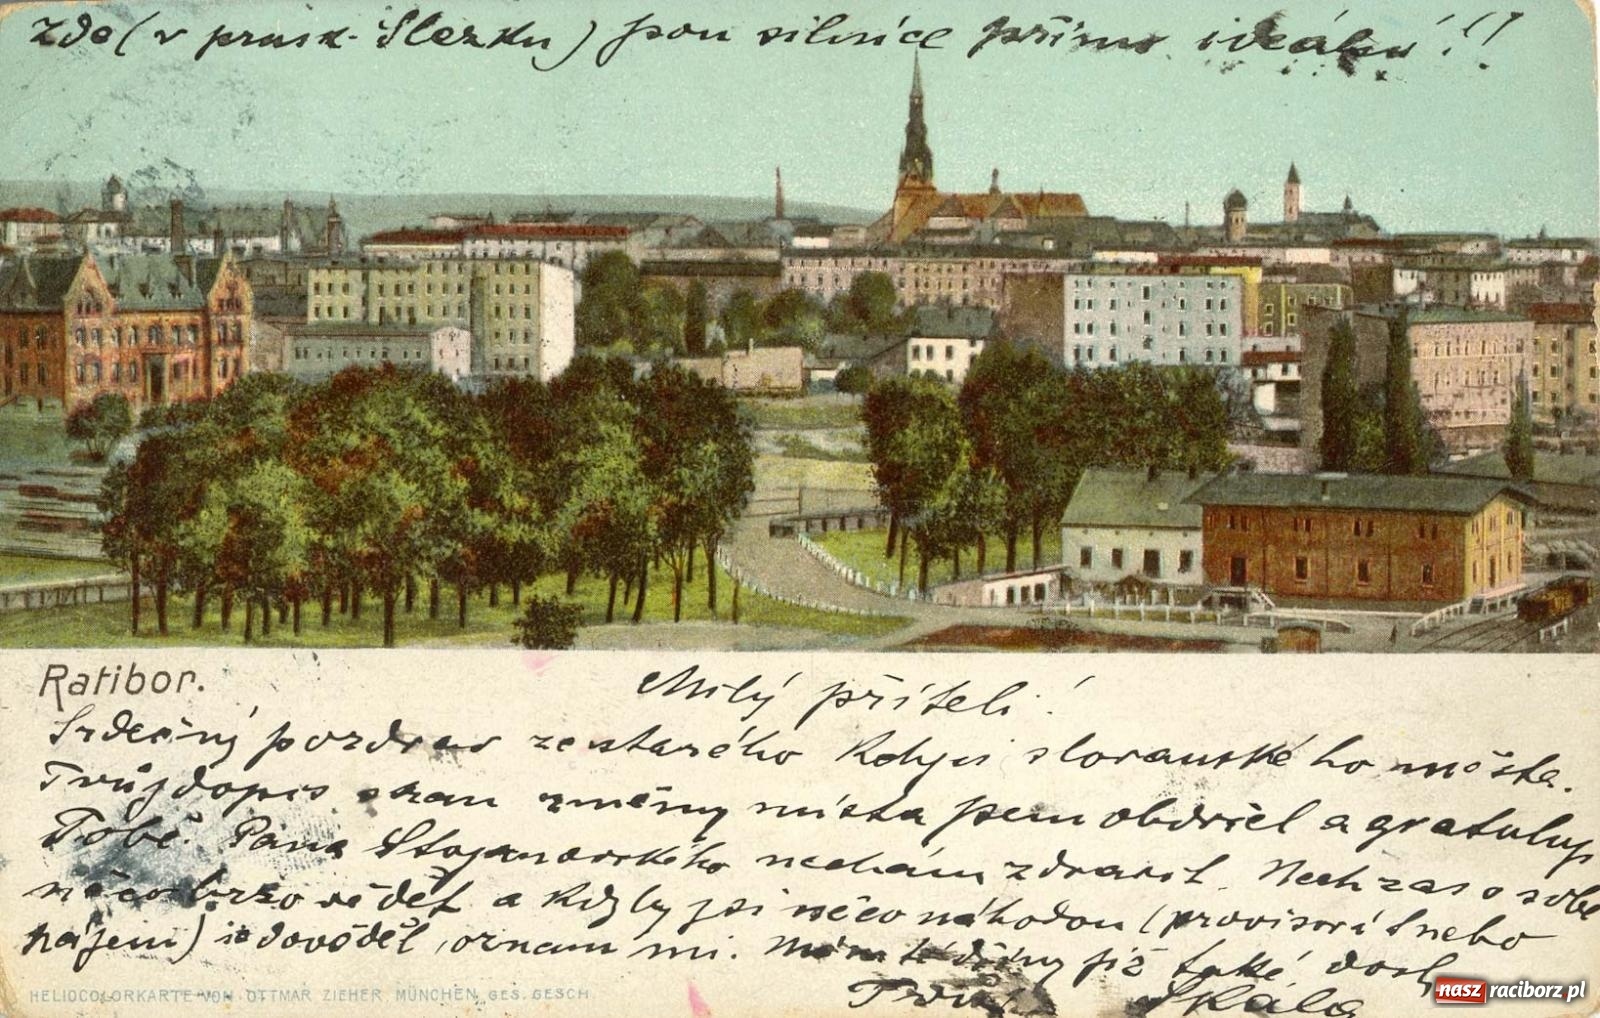 zde (v prusk. Slezku) jsou silnice přímo ideální!!
Ratibor.
Milý příteli!
Srdečný pozdrav ze starého kdysi slovanského města.
Tvůj dopis oznam změny místa jsem obdržel a gratuluji
Tobě. Pana Stojanovského nechám zdravit. Nech zas o sobě
něco brzo vědět a kdyby jsi něco náhodou (provisorí nebo
nájem) se dověděl, oznam mi. Mám té dřiny již také dost
Tvůj Skála
HELIOCOLORKARTE VON OTTMAR ZIEHER, MÜNCHEN, GES. GESCH.
nasz raciborz.pl